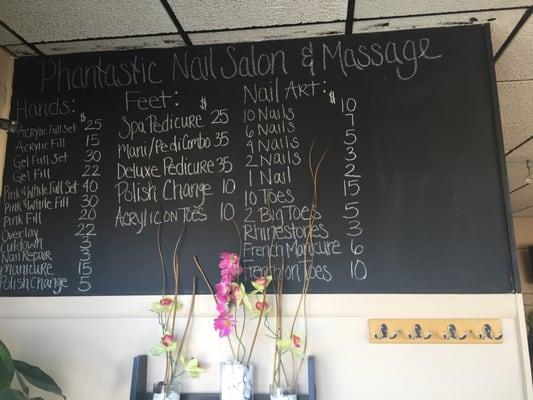 Phantastic Nail Salon & Massage
Hands: $
Acrylic Full Set 25
Acrylic Fill 15
Gel Full Set 30
Gel Fill 22
Pink & White Full Set 40
Pink & White Fill 30
Pink Fill 20
Overlay 22
Cutdown 3
Nail Repair 3
Manicure 15
Polish Change 5
Feet: $
Spa Pedicure 25
Mani/Pedi Combo 35
Deluxe Pedicure 35
Polish Change 10
Acrylic on Toes 10
Nail Art: $
10 Nails 10
6 Nails 7
4 Nails 5
2 Nails 3
1 Nail 2
10 Toes 15
2 Big Toes 5
Rhinestones 3
French Manicure 6
French on Toes 10